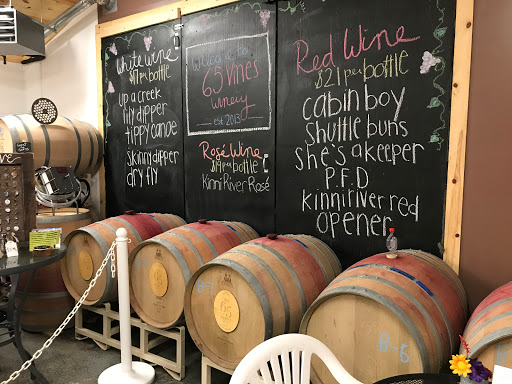 white wine
per bottle
up a creek
lily dipper
tippy canoe
skinny dipper
dry fly
Welcome to
65 Vines
Winery
est 2013
Rosé Wine
$19 per bottle
Kinni River Rosé
Red Wine
$21 per bottle
cabin boy
shuttle buns
she's a keeper
P.F.D
kinni river red
opener
B-6